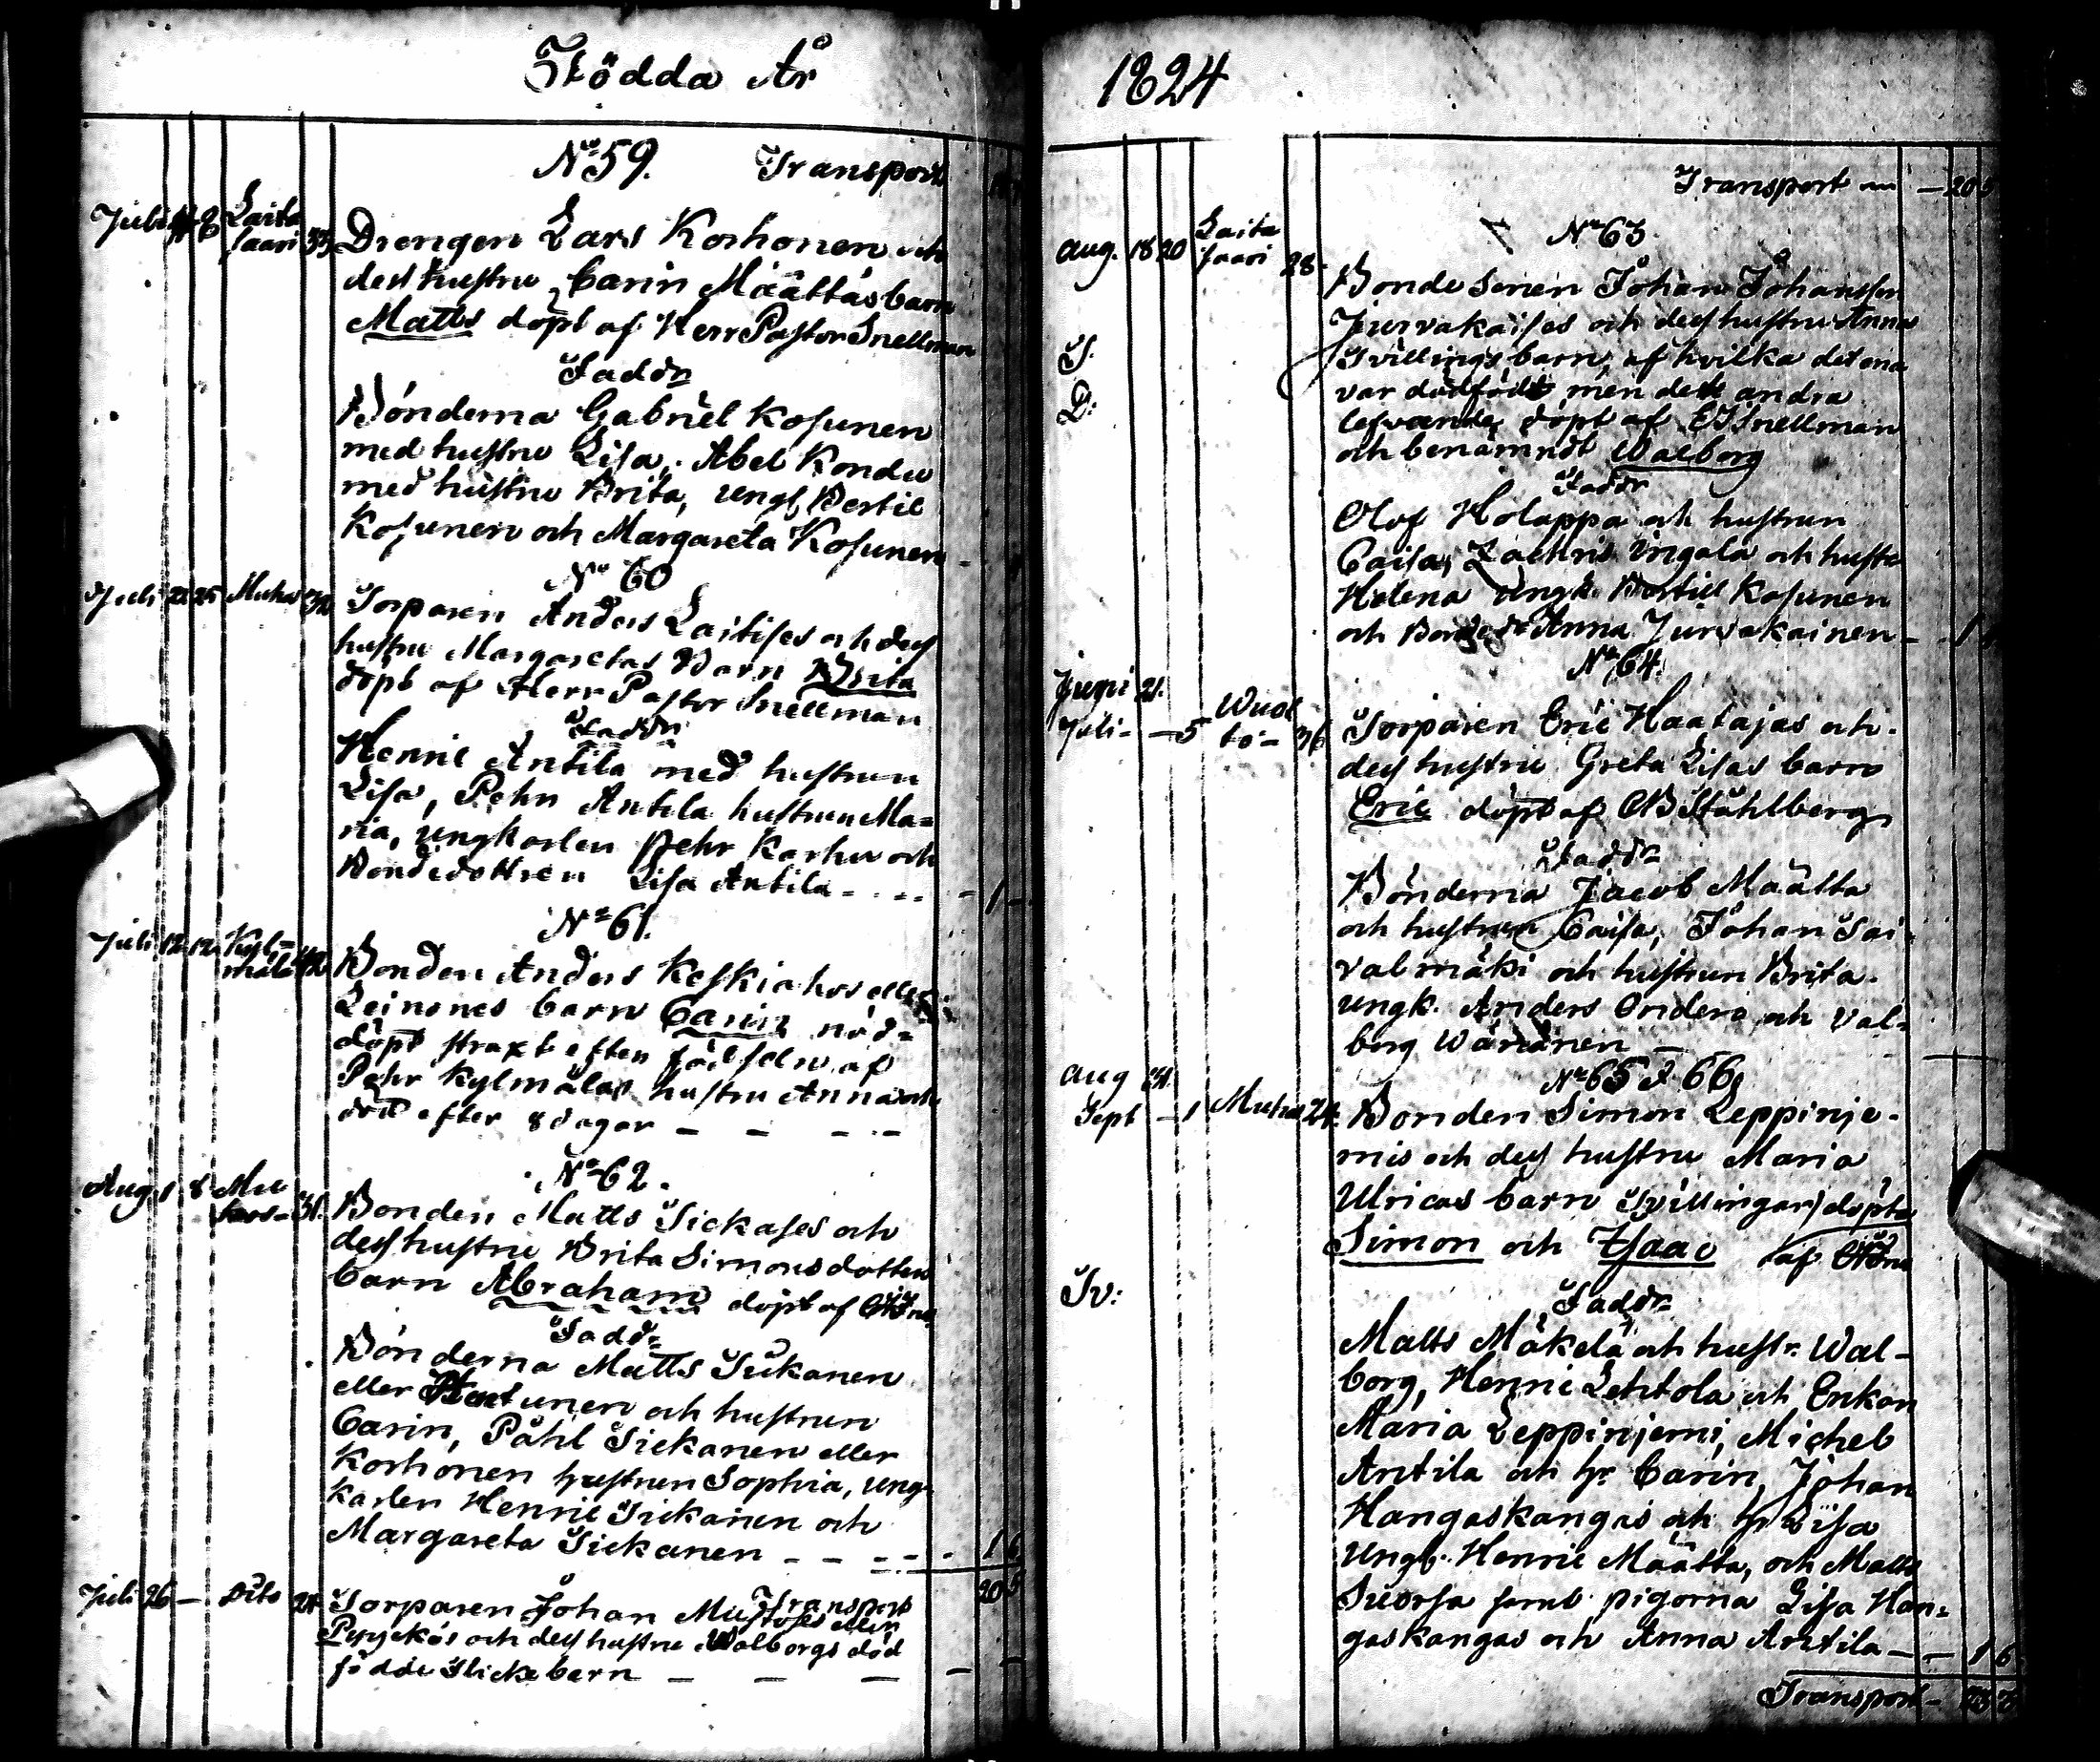 Födda År
No 59. Transport
Juli 8 Laita
saari 33 Drengen Lars Korhonen och
dess hustru Carin Määttäs barn
Matts döpt af Herr Pastor Snellman
Faddr
Bönderna Gabriel Kosunen
med hustru Lisa, Abel Kondu
med hustru Brita, ungk, Bertil
Kosunen och Margareta Kosunen
No 60
Juli 22 25 Muhos Torparen Anders Laitises och dess
hustru Margaretas Barn Brita
döpt af Herr Pastor Snellman
Faddr
Henric Antila med hustrun
Lisa, Pehr Antila hustrun Ma=
ria, ungkarlen Pehr Karhu och
Bondedottren Lisa Antila - - - - 1 -
No 61.
Juli 12 12 Kyl=
mälä 42 Bonden Anders Keskiahos eller
Leinones barn Carin nöd=
döpt straxt efter födseln af
Pehr Kylmälas hustru Anna och
död efter 8 dagar - - - -
No 62.
Aug. 1 8 Mu
hos - 31. Bonden Matts Sickases och
dess hustru Brita Simonsdotters
barn Abraham döpt af
Faddr
Bönderna Matts Sickanen
eller Partunen och hustrun
Carin, Påhl Sickanen eller
Korhonen hustrun Sophia, ung-
karlen Henric Sickanen och
Margareta Sickanen - - - - - 1 6
Transport 20 5
Juli 26 - Dito 24 Torparen Johan Mustoses eller
Pyyckös och dess hustru Walborgs död
födde Flickebarn - - - - -
1824
Transport - 20 5
No 63.
Aug. 18 20 Laita
saari 28. Bonde Sonen Johan Johansson
Jurvakaises och dess hustru Annas
T. Tvillingsbarn, af hvilka det ena
var dödfödt men det andra
D: lefvande, döpt af E Snellman
och benämndt Walborg
Faddr
Olof Holappa och hustrun
Caisa, Zachris Ingala och hustr
Helena ungk. Bertil Kosunen
och Bonded. Anna Jurvakainen - 1
No 64.
Juni 21.
Juli - - 5 Wuol
to - 36 Torparen Eric Haatajas och
dess hustru Greta Lisas barn
Eric döpt af Ståhlberg
Faddr
Bönderna Jacob Määtta
och hustrun Caisa, Johan Sai
valmäki och hustrun Brita
ungk. Anders Ondero och Val=
borg Wäränen -
No 65 & 66
Aug 31.
Sept - 1 Muhos 24. Bonden Simon Leppinje-
mis och dess hustru Maria
Ulricas barn (Tvillingar) döpte
Simon och Isaac af
Tv:
Faddr
Matts Mäkelä och hustr. Wal-
borg, Henric Lehtola och Enkan
Maria Leppinjemi, Michel
Antila och hr Carin, Johan
Hangaskangas och hr Lisa
Ungk. Henric Määtta, och Matts
Suorsa samt pigorna Lisa Han=
gaskangas och Anna Antila - - 1 6
Transport - 23